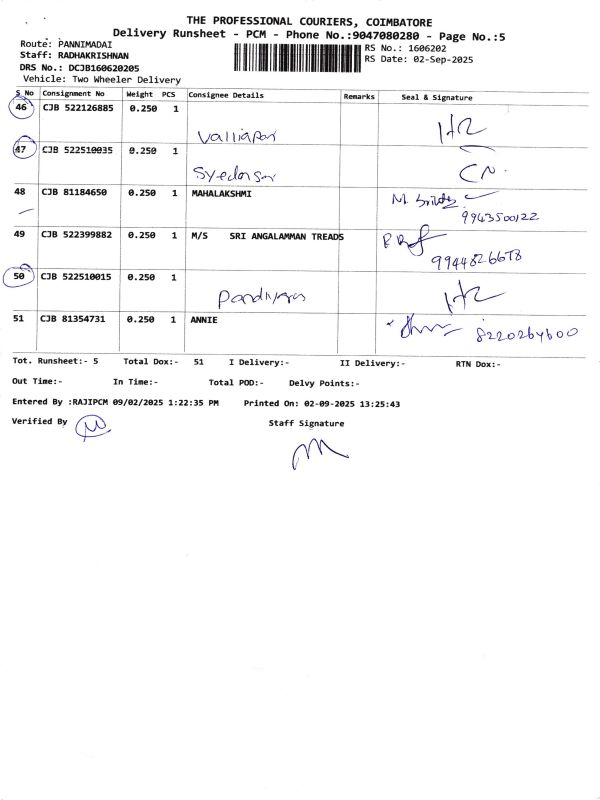 THE PROFESSIONAL COURIERS, COIMBATORE
Delivery Runsheet - PCM - Phone No.:9047080280 - Page No.:5
Route: PANNIMADAI
RS No.: 1606202
Staff: RADHAKRISHNAN
RS Date: 02-Sep-2025
DRS No.: DCJB160620205
Vehicle: Two Wheeler Delivery
S No Consignment No Weight PCS Consignee Details Remarks Seal & Signature
46 CJB 522126885 0.250 1
47 CJB 522510035 0.250 1
CN.
48 CJB 81184650 0.250 1 MAHALAKSHMI
9943500122
49 CJB 522399882 0.250 1 M/S SRI ANGALAMMAN TREADS
9944826678
50 CJB 522510015 0.250 1
51 CJB 81354731 0.250 1 ANNIE 8220264600
Tot. Runsheet:- 5 Total Dox:- 51 I Delivery:- II Delivery:- RTN Dox:-
Out Time:- In Time:- Total POD:- Delvy Points:-
Entered By :RAJIPCM 09/02/2025 1:22:35 PM Printed On: 02-09-2025 13:25:43
Verified By Staff Signature